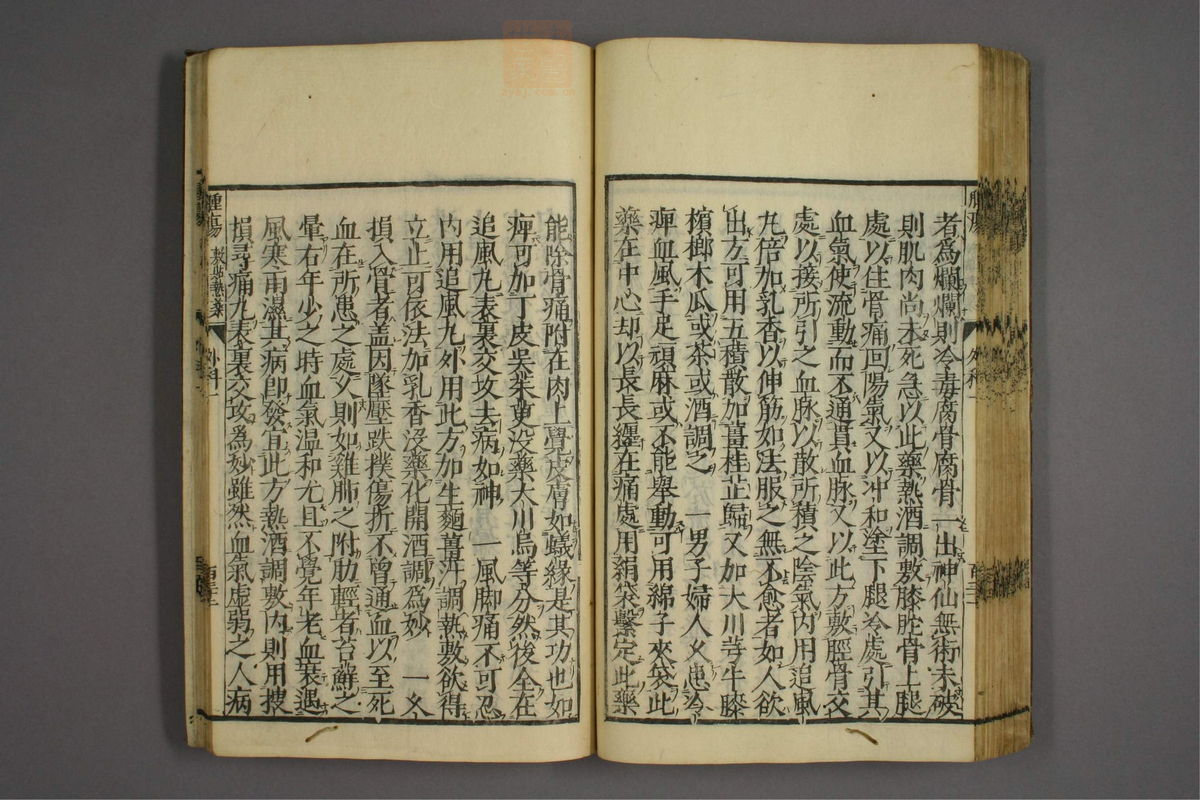 者為爛爛則冷毒腐骨腐骨一出神仙無術未破
則肌肉尚未死急以此藥熱酒調敷膝䏢骨上腿
處以住骨痛回陽氣又以冲和塗下腿冷處引其
血氣使流動而不通貫血脉又以此方敷脛骨交
處以接所引之血脉以散所積之陰氣內用追風
丸倍加乳香以伸筋如法服之無不愈者如人欲
出方可用五積散加薑桂芷歸又加大川芎牛膝
檳榔木瓜或茶或酒調之 一男子婦人久患冷
痺血風手足頑麻或不能舉動可用綿子夾袋此
藥在中心却以長長纏在痛處用絹袋繫定此藥
能除骨痛附在肉上覺皮膚如蟻緣是其功也如
痺可加丁皮吳茱萸没藥大川烏等分然後全在
追風丸表裏交攻去病如神 一風脚痛不可忍
內用追風丸外用此方加生麵薑汁調熱敷欲得
立止可依法加乳香没藥化開酒調為妙 一久
損入骨者盖因墜壓跌撲傷折不曾通血以至死
血在所患之處久則如雞肺之附肋輕者苔蘚之
暈石年少之時血氣温和尤且不覺年老血衰遇
風寒雨濕其病即發宜此方熱酒調敷內則用搜
損尋痛丸表裏交攻為妙雖然血氣虛弱之人病
腫瘍 外科一